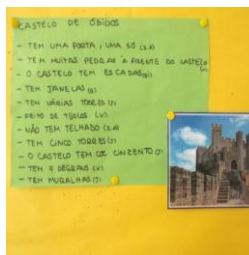 CASTELO DE ÓBIDOS
- TEM UMA PORTA, UMA SÓ
- TEM MUITAS PEDRAS À FRENTE DO CASTELO
- O CASTELO TEM ESCADAS
- TEM JANELAS
- TEM VÁRIAS TORRES
- FEITO DE TIJOLOS
- NÃO TEM TELHADO
- TEM CINCO TORRES
- O CASTELO TEM COR CINZENTO
- TEM 9 DEGRAUS
- TEM MURALHAS